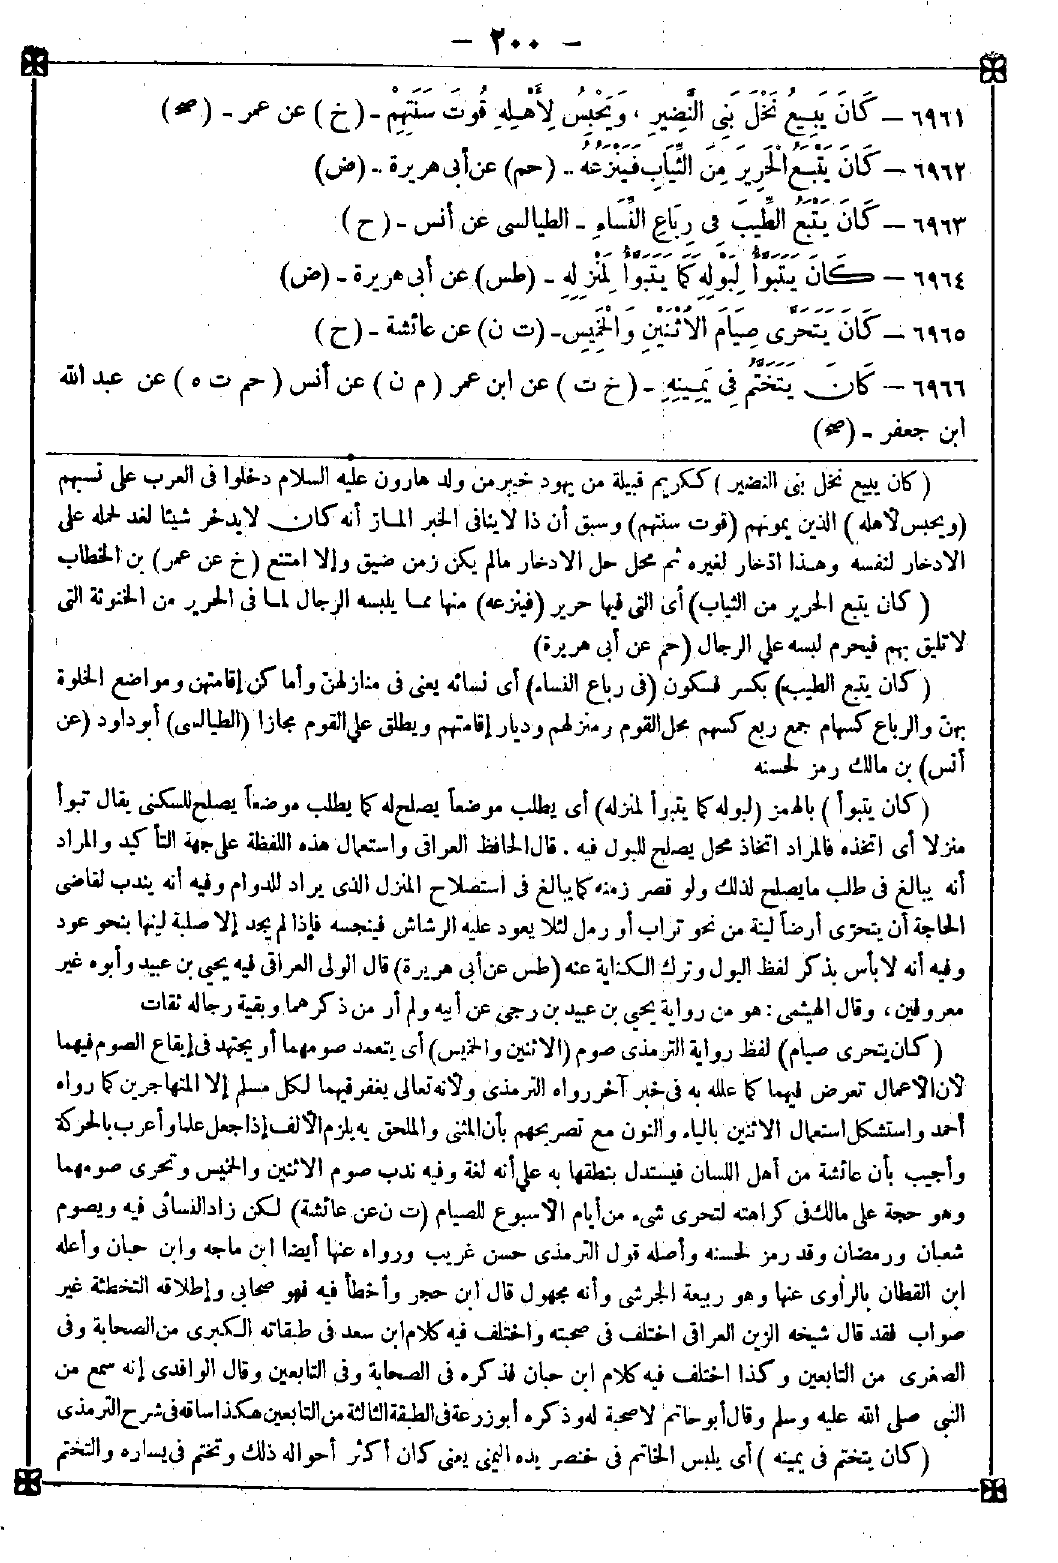 - ٢٠٠ -
٦٩٦١ - كَانَ يَبِيعُ نَخْلَ بَنِى النَّضِيرِ، وَيَحْبِسُ لِأَهْلِهِ قُوتَ سَنَتِهِمْ - (خ) عن عمر - (صح)
٦٩٦٢ - كَانَ يَتْبَعُ الْحَرِيرَ مِنَ الثِّيَابِ فَيَنْزِعُهُ - (حم) عن أبى هريرة - (ض)
٦٩٦٣ - كَانَ يَتْبَعُ الطِّيبَ فِى رِبَاعِ النِّسَاءِ - الطيالسى عن أنس - (ح)
٦٩٦٤ - كَانَ يَتَبَوَّأُ لِبَوْلِهِ كَمَا يَتَبَوَّأُ لِمَنْزِلِهِ - (طس) عن أبى هريرة - (ض)
٦٩٦٥ - كَانَ يَتَحَرَّى صِيَامَ الاثْنَيْنِ وَالْخَمِيسِ - (ت ن) عن عائشة - (ح)
٦٩٦٦ - كَانَ يَتَخَتَّمُ فِى يَمِينِهِ - (خ ت) عن ابن عمر (م ن) عن أنس (حم ت ه) عن عبد الله
ابن جعفر - (صح)
(كان يبيع نخل بنى النضير) ككريم قبيلة من يهود خيبر من ولد هارون عليه السلام دخلوا فى العرب على نسبهم
(ويحبس لأهله) الذين يمونهم (قوت سنتهم) وسبق أن ذا لا ينافى الخبر المار أنه كان لا يدخر شيئا لغد لحمله على
الادخار لنفسه وهذا ادخار لغيره ثم محل حل الادخار مالم يكن زمن ضيق وإلا امتنع (خ عن عمر) بن الخطاب
(كان يتبع الحرير من الثياب) أى التى فيها حرير (فينزعه) منها مما يلبسه الرجال لما فى الحرير من الخنوثة التى
لا تليق بهم فيحرم لبسه على الرجال (حم عن أبى هريرة)
(كان يتبع الطيب) بكسر فسكون (فى رباع النساء) أى نسائه يعنى فى منازلهن وأماكن إقامتهن ومواضع الخلوة
بهن والرباع كسهام جمع ربع كسهم محل القوم ومنزلهم وديار إقامتهم ويطلق على القوم مجازا (الطيالسى) أبو داود (عن
أنس) بن مالك رمز لحسنه
(كان يتبوأ) بالهمز (لبوله كما يتبوأ لمنزله) أى يطلب موضعاً يصلح له كما يطلب موضعاً يصلح للسكنى يقال تبوأ
منزلا أى اتخذه فالمراد اتخاذ محل يصلح للبول فيه . قال الحافظ العراقى واستعمال هذه اللفظة على جهة التأكيد والمراد
أنه يبالغ فى طلب ما يصلح لذلك ولو قصر زمنه كما يبالغ فى استصلاح المنزل الذى يراد للدوام وفيه أنه يندب لقاضى
الحاجة أن يتحرى أرضاً لينة من نحو تراب أو رمل لئلا يعود عليه الرشاش فينجسه فإذا لم يجد إلا صلبة لينها بنحو عود
وفيه أنه لا بأس بذكر لفظ البول وترك الكناية عنه (طس عن أبى هريرة) قال الولى العراقى فيه يحيى بن عبيد وأبوه غير
معروفين، وقال الهيثمى : هو من رواية يحيى بن عبيد بن رجى عن أبيه ولم أر من ذكرهما وبقية رجاله ثقات
(كان يتحرى صيام) لفظ رواية الترمذى صوم (الاثنين والخميس) أى يتعمد صومهما أو يجتهد فى إيقاع الصوم فيهما
لأن الأعمال تعرض فيهما كما علله به فى خبر آخر رواه الترمذى ولأنه تعالى يغفر فيهما لكل مسلم إلا المتهاجرين كما رواه
أحمد واستشكل استعمال الاثنين بالياء والنون مع تصريحهم بأن المثنى والملحق به يلزم الألف إذا جعل علما وأعرب بالحركة
وأجيب بأن عائشة من أهل اللسان فيستدل بنطقها به على أنه لغة وفيه ندب صوم الاثنين والخميس وتحرى صومهما
وهو حجة على مالك فى كراهته لتحرى شىء من أيام الأسبوع للصيام (ت ن عن عائشة) لكن زاد النسائى فيه ويصوم
شعبان ورمضان وقد رمز لحسنه وأصله قول الترمذى حسن غريب ورواه عنها أيضا ابن ماجه وابن حبان وأعله
ابن القطان بالراوى عنها وهو ربيعة الجرشى وأنه مجهول قال ابن حجر وأخطأ فيه فهو صحابى وإطلاقه التخطئة غير
صواب فقد قال شيخه الزين العراقى اختلف فى صحبته واختلف فيه كلام ابن سعد فى طبقاته الكبرى من الصحابة وفى
الصغرى من التابعين وكذا اختلف فيه كلام ابن حبان فذكره فى الصحابة وفى التابعين وقال الواقدى إنه سمع من
النبى صلى الله عليه وسلم وقال أبو حاتم لا صحبة له وذكره أبو زرعة فى الطبقة الثالثة من التابعين هكذا ساقه فى شرح الترمذى
(كان يتختم فى يمينه) أى يلبس الخاتم فى خنصر يده اليمنى يعنى كان أكثر أحواله ذلك وتختم فى يساره والتختم